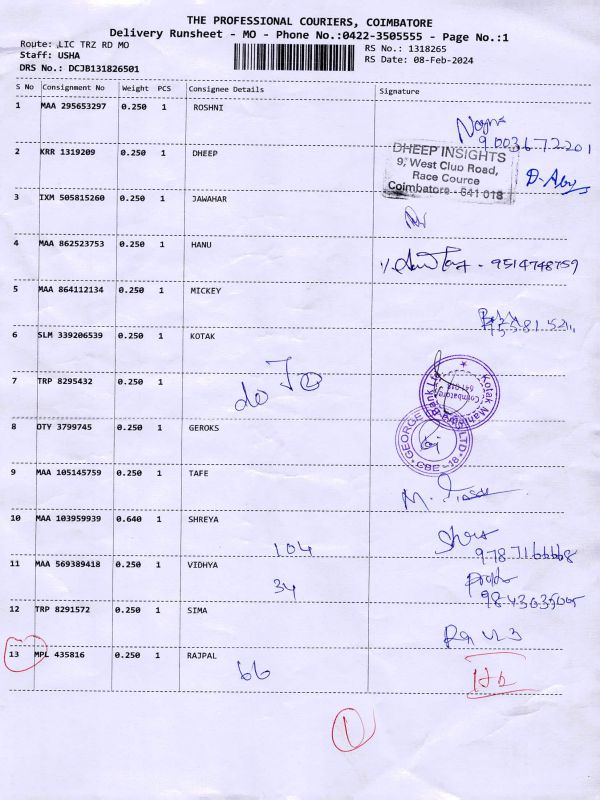 THE PROFESSIONAL COURIERS, COIMBATORE
Delivery Runsheet - MO - Phone No.:0422-3505555 - Page No.:1
Route: ,LIC TRZ RD MO
RS No.: 1318265
Staff: USHA
RS Date: 08-Feb-2024
DRS No.: DCJB131826501
S No Consignment No Weight PCS Consignee Details Signature
1 MAA 295653297 0.250 1 ROSHNI
9003672201
2 KRR 1319209 0.250 1 DHEEP
DHEEP INSIGHTS
9, West Club Road,
Race Cource
Coimbatore - 641 018
3 IXM 505815260 0.250 1 JAWAHAR
4 MAA 862523753 0.250 1 HANU
9514748759
5 MAA 864112134 0.250 1 MICKEY
6 SLM 339206539 0.250 1 KOTAK
do
7 TRP 8295432 0.250 1
Kotak Mahi
Coimbatore
8 OTY 3799745 0.250 1 GEROKS
GEORGE
LTD
CBE-18
9 MAA 105145759 0.250 1 TAFE
10 MAA 103959939 0.640 1 SHREYA
104
11 MAA 569389418 0.250 1 VIDHYA
34
12 TRP 8291572 0.250 1 SIMA
13 MPL 435816 0.250 1 RAJPAL
66
1